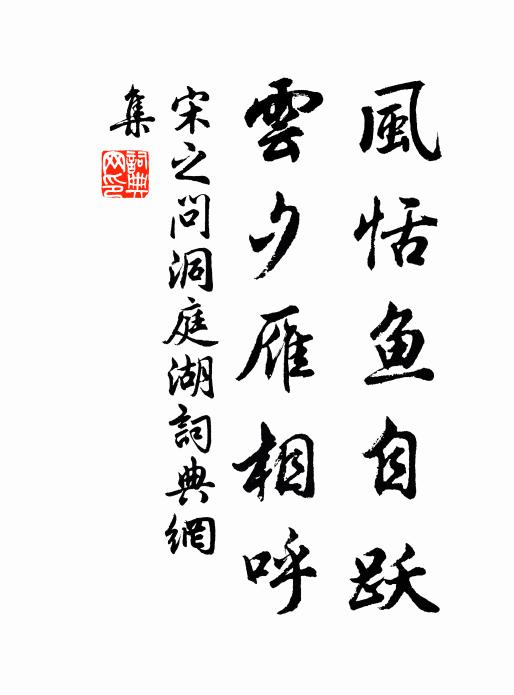 風恬鱼自跃
雲夕雁相呼
宋之问洞庭湖詞典網
集
詞典
网印